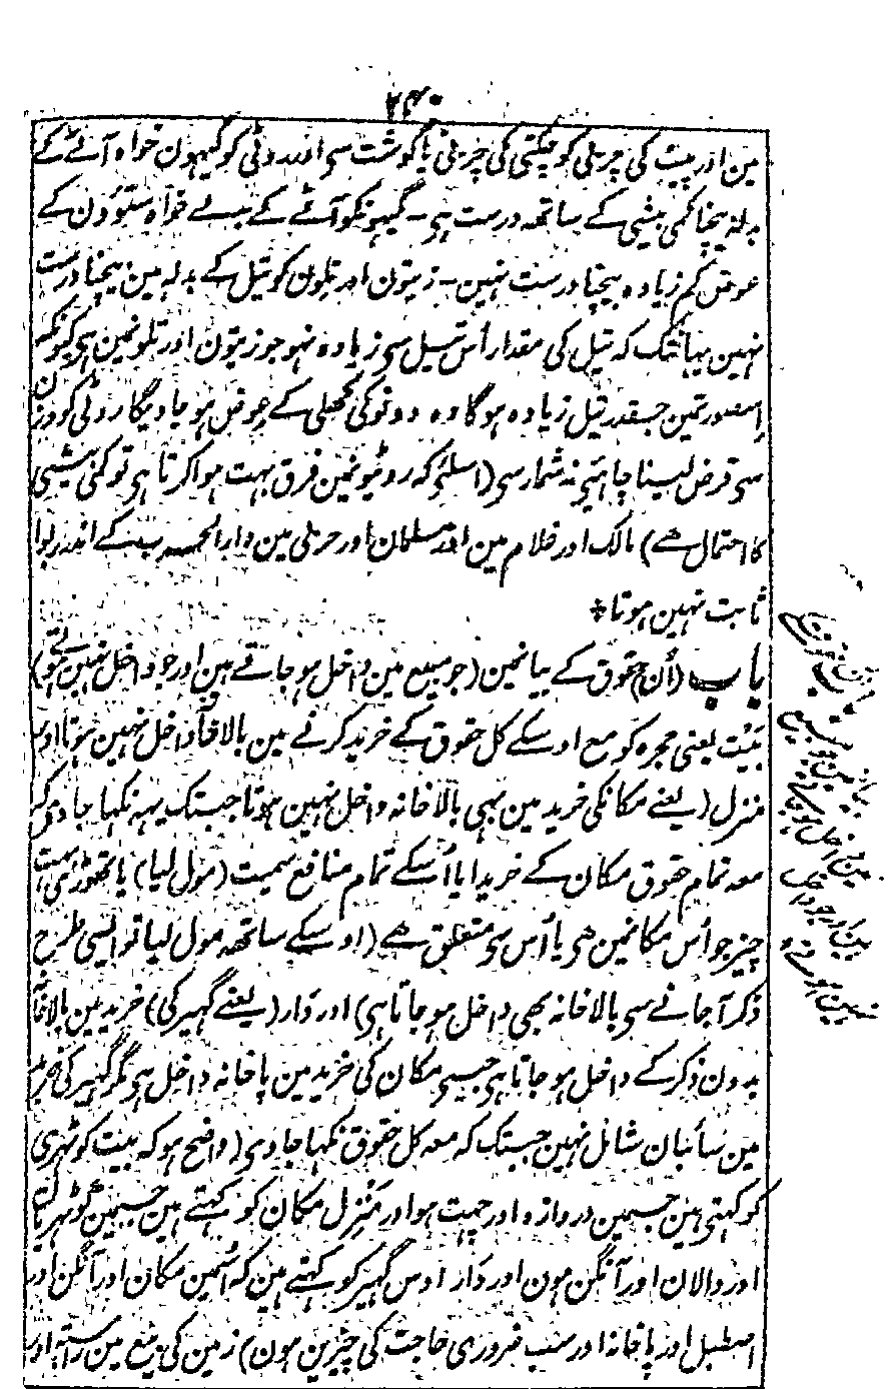 ۲۴۰
مین اور پیٹ کی چربی کو چکتی کی چربی یا گوشت سی اور روٹی کو گیہون خواہ آٹے کے
بدلہ بیچنا کمی بیشی کے ساتھ درست ہی - گیہونکو آٹے کے بدلے خواہ ستوؤن کے
عوض کم زیادہ بیچنا درست نہین - زیتون اور تلون کو تیل کے بدلہ مین بیچنا درست
نہین یہانتک کہ تیل کی مقدار اُس تیل سی زیادہ نہو جو زیتون اور تلونمین ہی کیونکہ
اِسصورتمین جسقدر تیل زیادہ ہوگا وہ دونو کی کھلی کے عوض ہوجاویگا روٹی کو وزن
سی قرض لینا چاہئیے نہ شمار سی (اسلئے کہ روٹیونمین فرق بہت ہوا کرتا ہی تو کمی بیشی
کا احتمال ہے) مالک اور غلام مین اور مسلمان اور حربی مین دار الحرب کے اندر ربوا
ثابت نہین ہوتا
باب (اُن) حقوق کے بیانمین (جو مبیع مین داخل ہو جاتے ہین اور جو داخل نہین ہوتے)
بَیت یعنی حجرہ کو مع اوسکے کل حقوق کے خرید کرنے مین بالاخانہ داخل نہین ہوتا اور
منزل (یعنے مکان) کی خرید مین بہی بالاخانہ داخل نہین ہوتا جبتک یہہ نکہا جاوی کہ
معہ تمام حقوق مکان کے خریدا یا اُسکے تمام منافع سمیت (مول لیا) یا تھوڑی بہت
چیز جو اُس مکانمین ہی یا اُس سی متعلق ہے (اوسکے ساتھہ مول لیا تو اِسی طرح
ذکر آجانے سی بالاخانہ بھی داخل ہو جاتا ہی) اور دَار (یعنے گہر کی) خرید مین بالاخانہ
بدون ذکر کے داخل ہو جاتا ہی جیسی مکان کی خرید مین پاخانہ داخل ہی مگر گہر کی خرید
مین سائبان شامل نہین جبتک کہ معہ کل حقوق نکہا جاوی (واضح ہو کہ بیت کوٹہری
کو کہتی ہین جسمین دروازہ اور چہت ہو اور مَنزِل مکان کو کہتے ہین جسمین کوٹہریان
اور دالان اور آنگن ہون اور دَار اوس گہر کو کہتے ہین کہ اسمین مکان اور آنگن اور
اصطبل اور پاخانہ اور سب ضروری حاجت کی چیزین ہون) زمین کی بیع مین راستہ اور